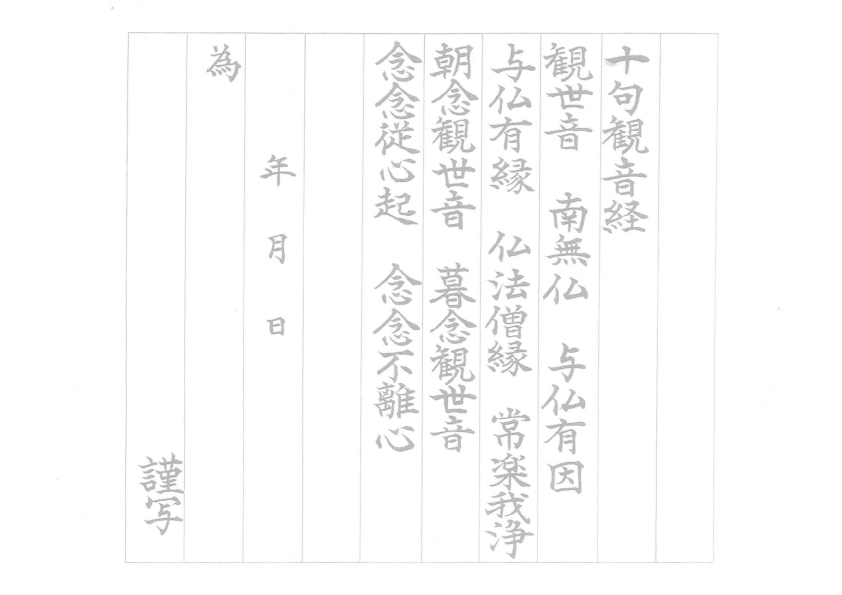 十句観音経
観世音　南無仏　与仏有因
与仏有縁　仏法僧縁　常楽我浄
朝念観世音　暮念観世音
念念従心起　念念不離心
年　月　日
為
謹写